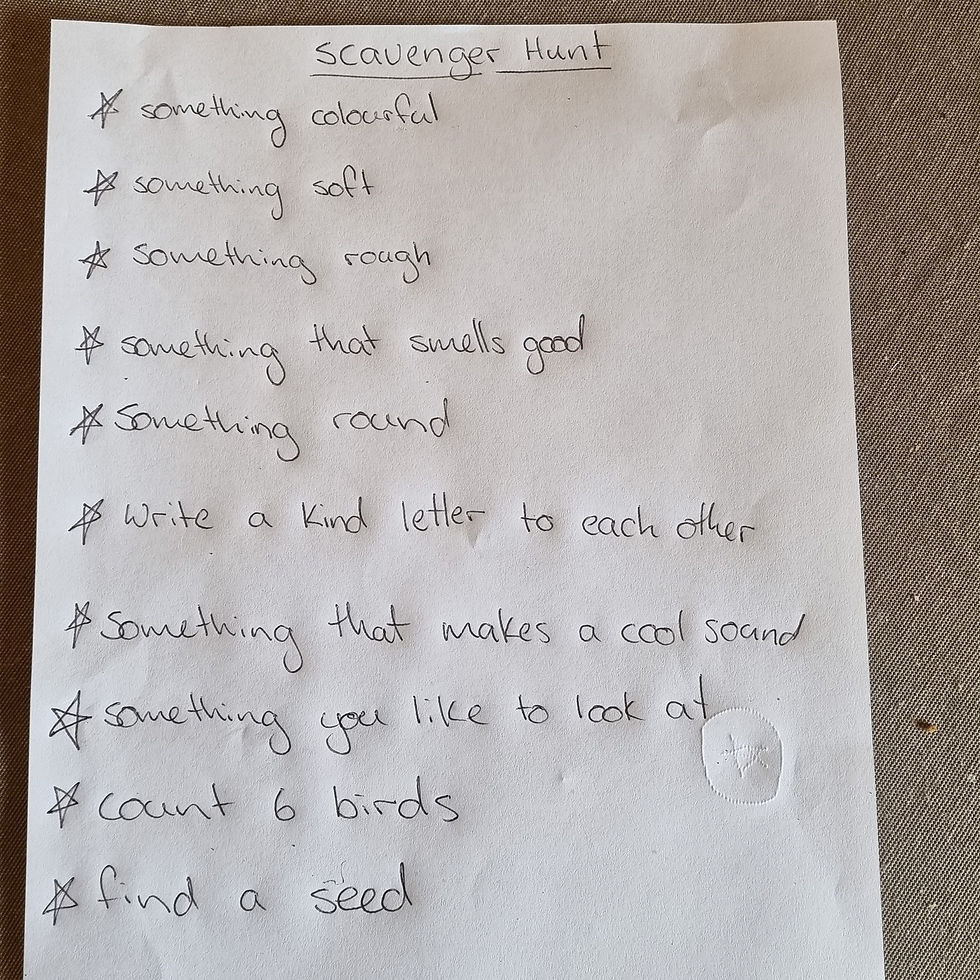 Scavenger Hunt
☆ something colourful
☆ something soft
☆ something rough
☆ something that smells good
☆ Something round
☆ Write a kind letter to each other
☆ Something that makes a cool sound
☆ something you like to look at
☆ count 6 birds
☆ find a seed